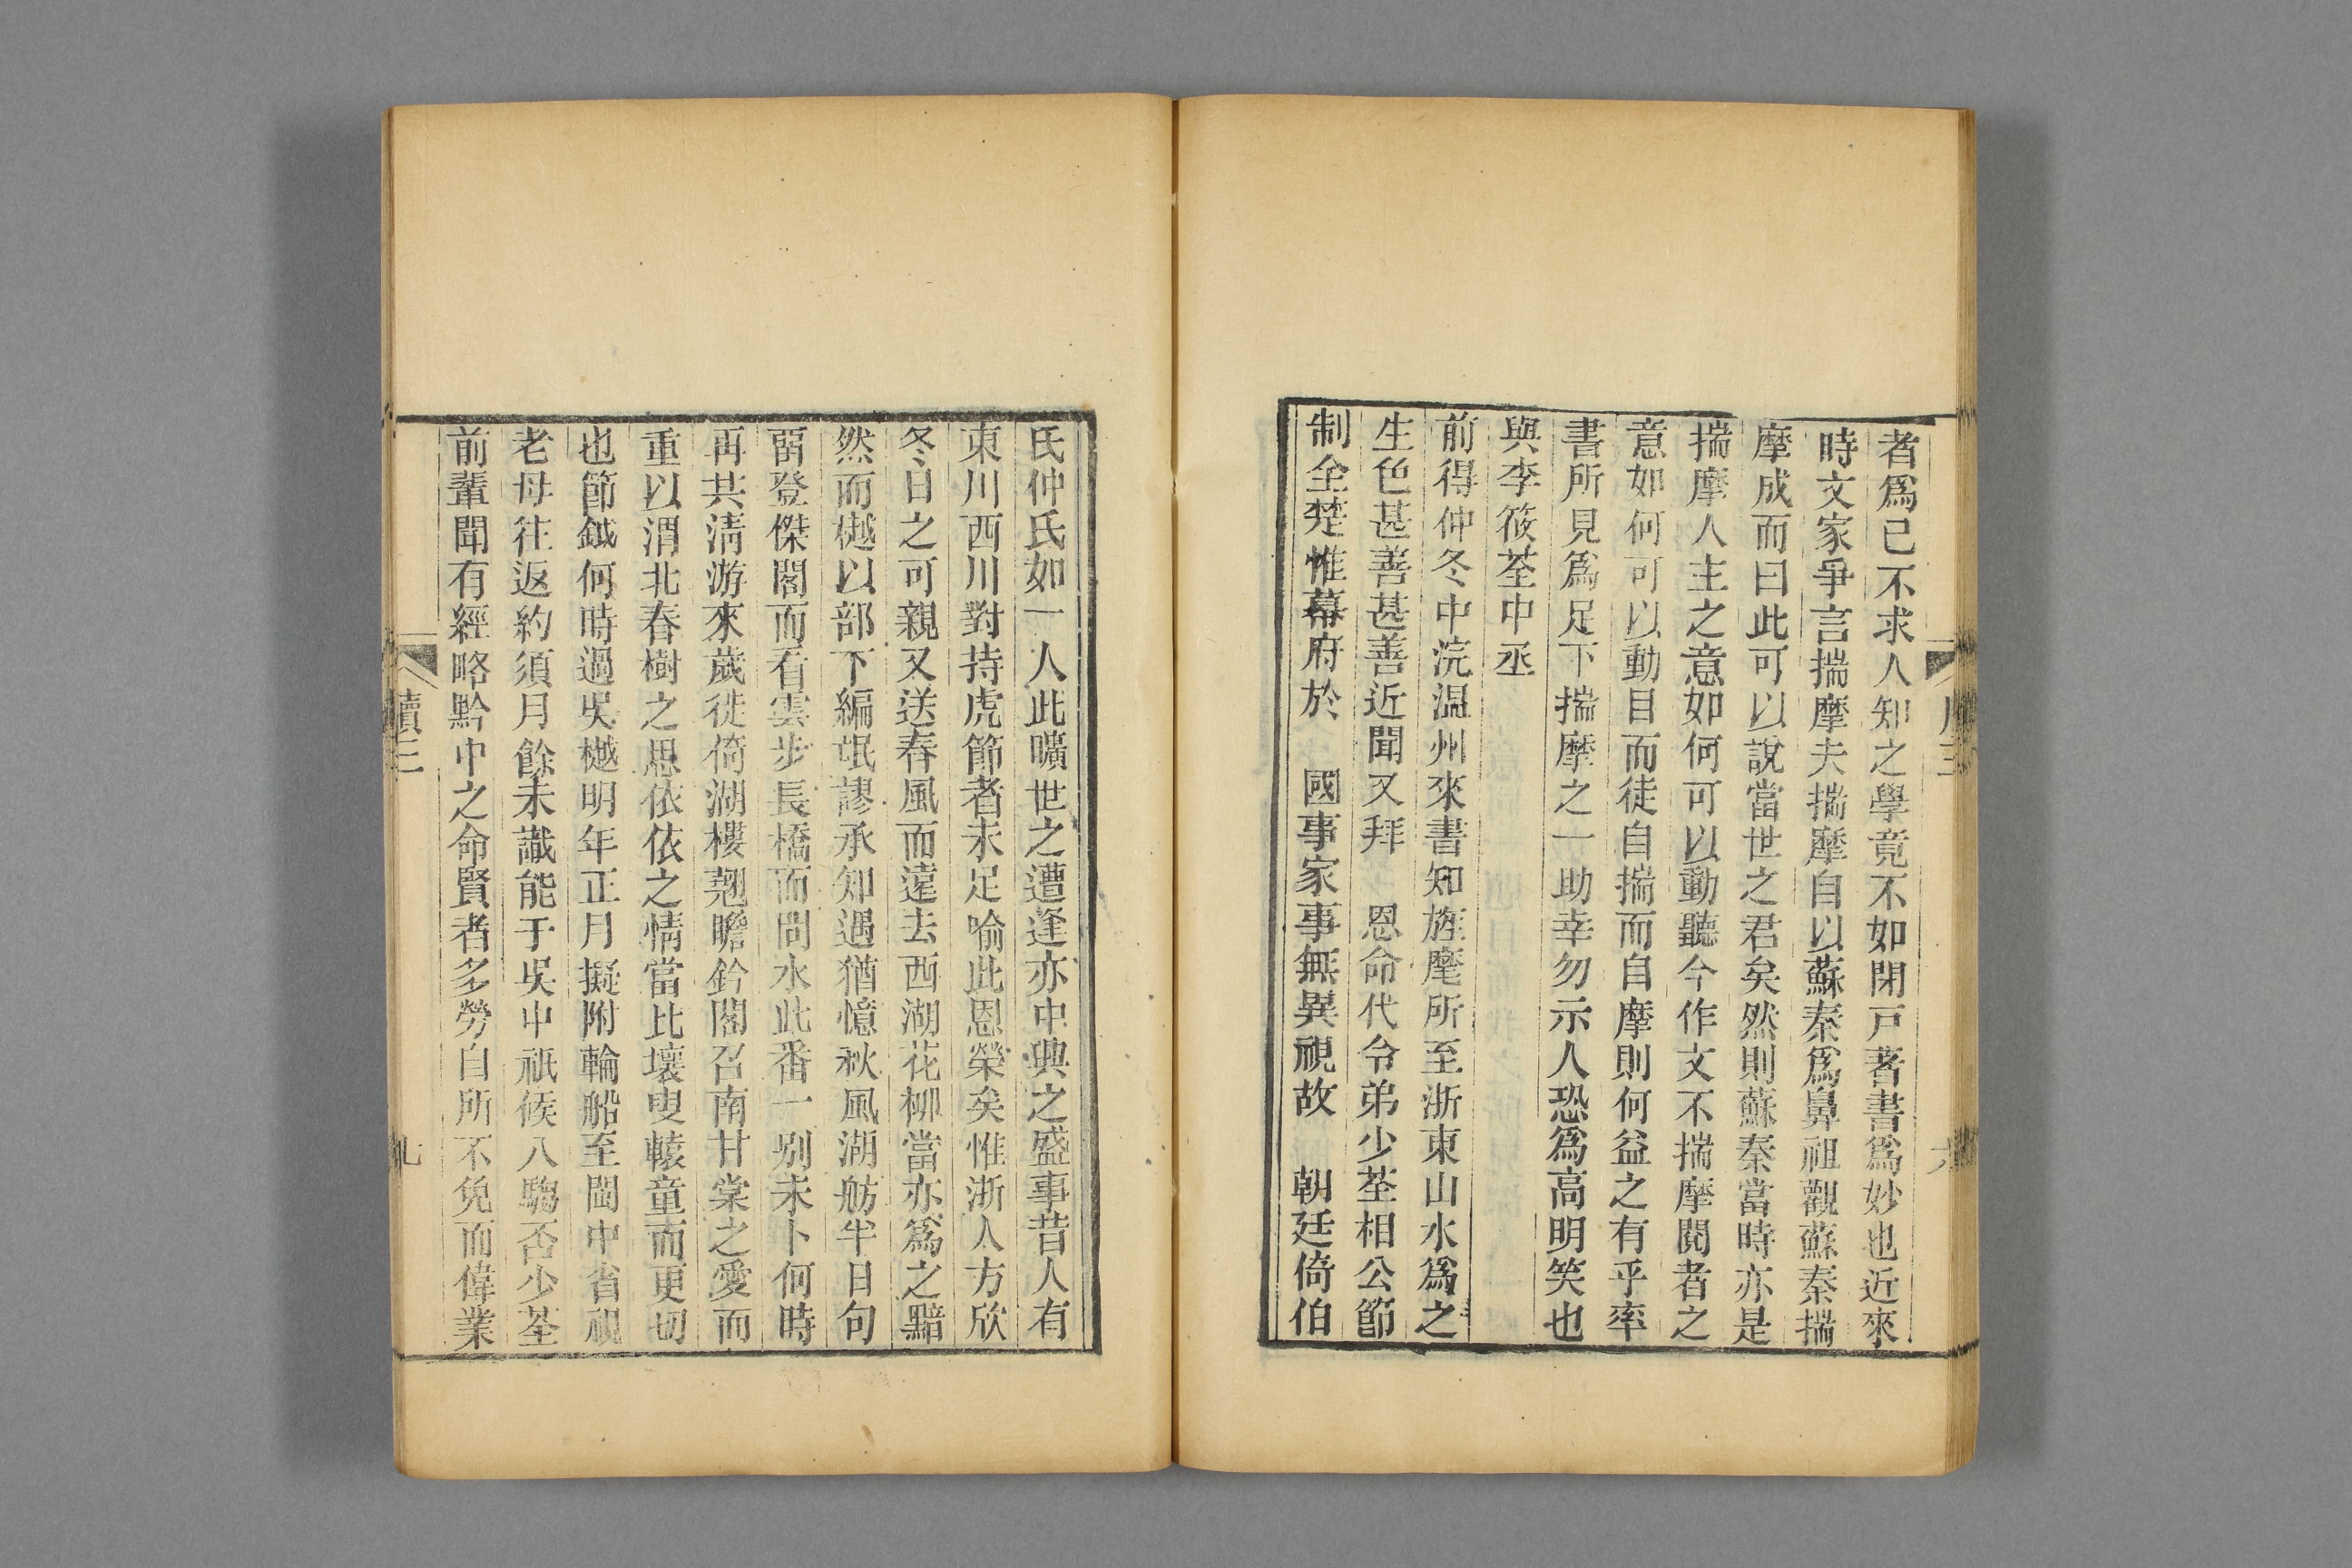 者爲已不求人知之學竟不如閉戸著書爲妙也近來
時文家爭言揣摩夫揣摩自以蘇秦爲鼻祖觀蘇秦揣
摩成而曰此可以說當世之君矣然則蘇秦當時亦是
揣摩人主之意如何可以動聽今作文不揣摩閱者之
意如何可以動目而徒自揣而自摩則何益之有乎率
書所見爲足下揣摩之一助幸勿示人恐爲高明笑也
與李筱荃中丞
前得仲冬中浣温州來書知旌麾所至浙東山水爲之
生色甚善甚善近聞又拜 恩命代令弟少荃相公節
制全楚惟幕府於 國事家事無異視故 朝廷倚伯
氏仲氏如一人此曠世之遭逢亦中興之盛事昔人有
東川西川對持虎節者未足喻此恩榮矣惟浙人方欣
冬日之可親又送春風而遠去西湖花柳當亦爲之黯
然而樾以部下編氓謬承知遇猶憶秋風湖舫半日句
留登傑閣而看雲步長橋而問水此番一别未卜何時
再共清游來歲徙倚湖樓翹瞻鈐閣召南甘棠之愛而
重以渭北春樹之思依依之情當比壤叟轅童而更切
也節鉞何時過吳樾明年正月擬附輪船至閩中省視
老母往返約須月餘未識能于吳中祇候八騶否少荃
前輩聞有經略黔中之命賢者多勞自所不免而偉業
續三
九